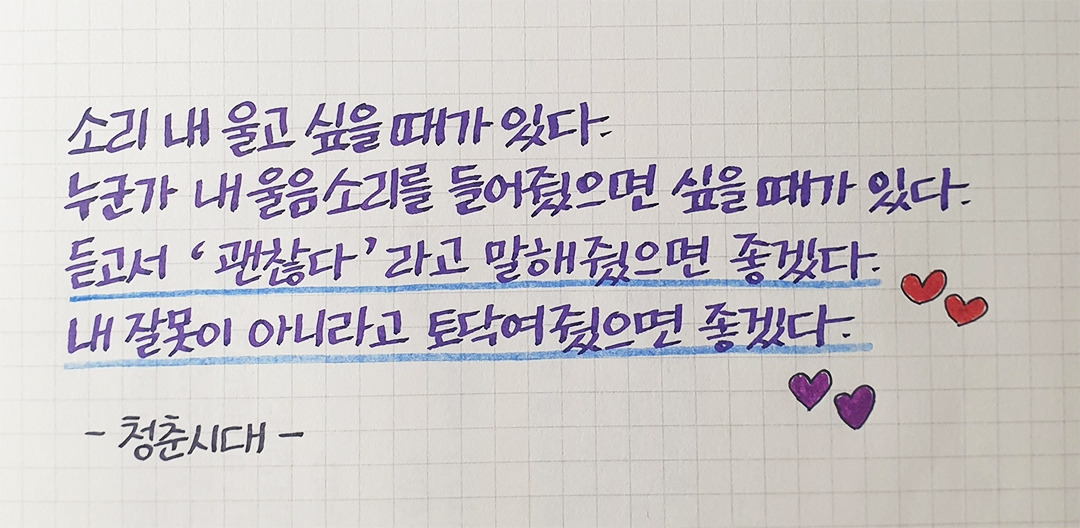 소리 내 울고 싶을 때가 있다.
누군가 내 울음소리를 들어줬으면 싶을 때가 있다.
듣고서 '괜찮다' 라고 말해줬으면 좋겠다.
내 잘못이 아니라고 토닥여줬으면 좋겠다.
- 청춘시대 -